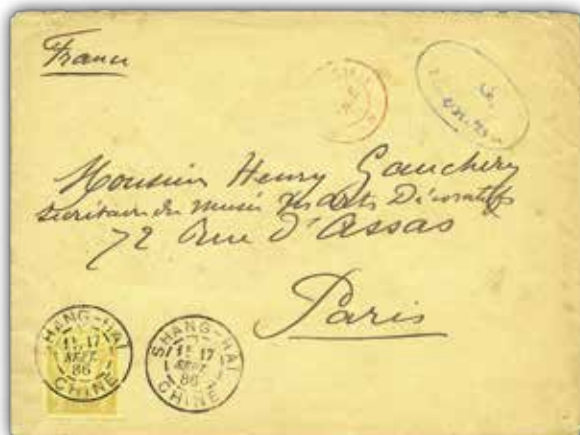 France
Monsieur Henry Gauchery
Secrétaire du Musée des arts Décoratifs
72 Rue D'Assas
Paris
SHANG-HAI
17
SEPT.
86
CHINE
SHANG-HAI
17
SEPT.
86
CHINE